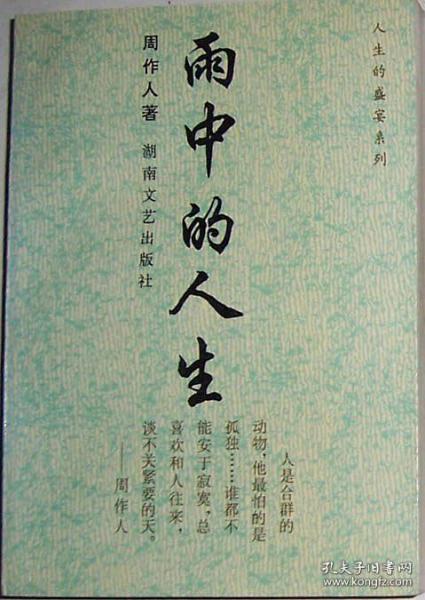 人生的盛宴系列
雨中的人生
周作人著
湖南文艺出版社
人是合群的
动物，他最怕的是
孤独……谁都不
能安于寂寞，总
喜欢和人往来，
谈不关紧要的天。
——周作人
孔夫子旧书网
www.kongfz.com